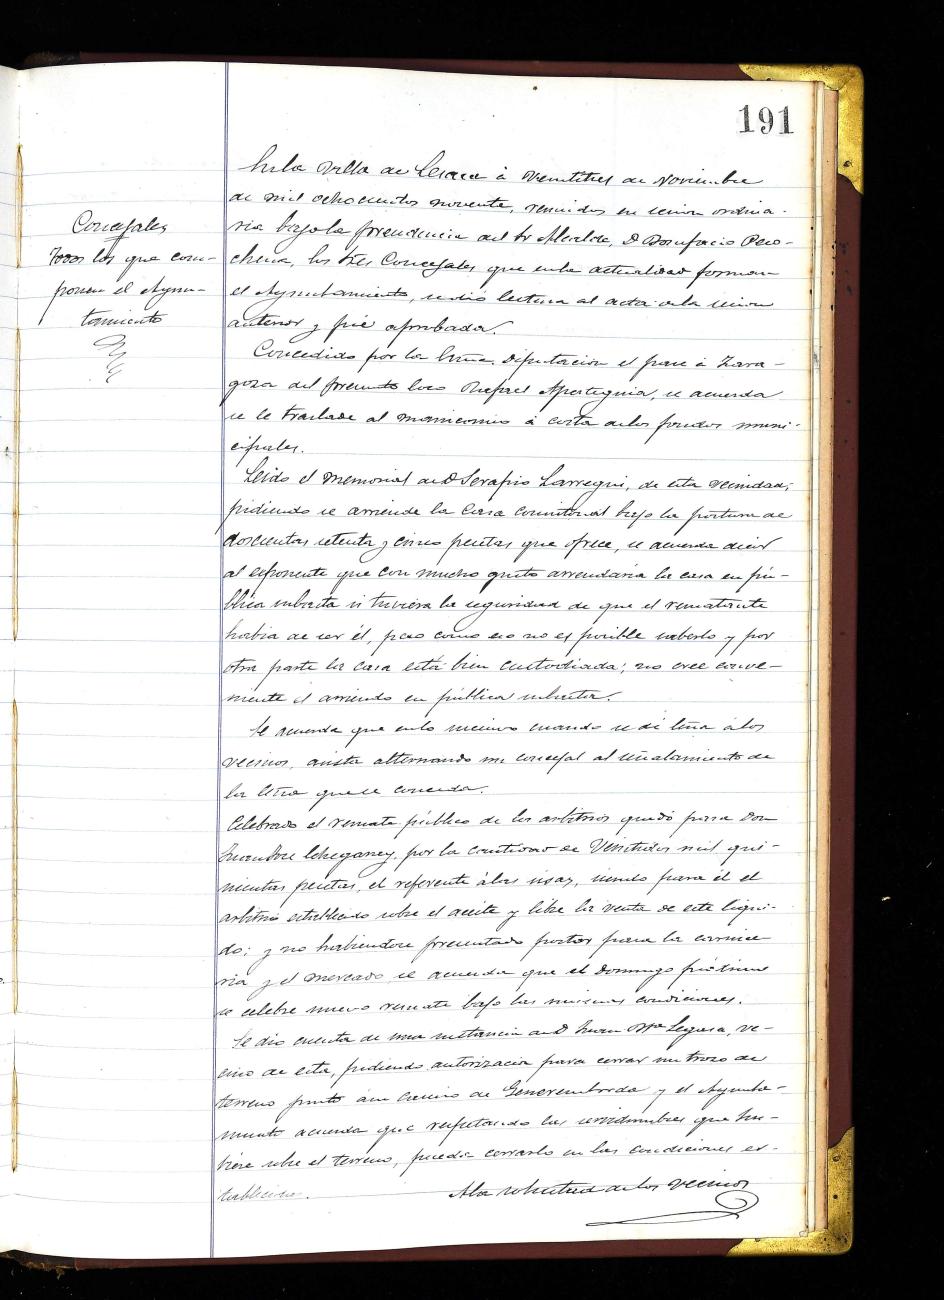 191
En la villa de Lesaca á veintitres de Noviembre
de mil ochocientos noventa, reunidos en sesion ordina-
ria bajo la presidencia del Sr Alcalde, D Bonifacio Peco-
chena, los tres Concejales que en la actualidad forman
el Ayuntamiento, se dió lectura al acta de la sesion
anterior y fué aprobada.
Concejales
Todos los que com-
ponen el Ayun-
tamiento
Concedido por la Excma Diputacion el pase á Zara-
goza del presunto loco Rafael Aperteguia, se acuerda
se le traslade al manicomio á costa de los fondos muni-
cipales.
Leido el memorial de D Serafin Larregui, de esta vecindad,
pidiendo se arriende la casa consistorial bajo la postura de
doscientas setenta y cinco pesetas que ofrece, se acuerda decir
al exponente que con mucho gusto arrendaria la casa en pú-
blica subasta si tuviera la seguridad de que el rematante
habia de ser él, pero como eso no es posible saberlo y por
otra parte la casa está bien custodiada; no cree conve-
niente el arriendo en pública subasta.
Se acuerda que en lo sucesivo cuando se dé leña á los
vecinos, asista alternando un concejal al señalamiento de
la leña que se conceda.
Celebrado el remate público de los arbitrios quedó para Don
Juan José Echegaray, por la cantidad de Veintidos mil qui-
nientas pesetas, el referente á las sisas, siendo para él el
arbitrio establecido sobre el aceite y libre la venta de este liqui-
do; y no habiendose presentado postor para la carnice-
ria y el mercado se acuerda que el Domingo próximo
se celebre nuevo remate bajo las mismas condiciones.
Se dió cuenta de una instancia de D Juan Mª Legasa, ve-
cino de esta, pidiendo autorizacion para cerrar un trozo de
terreno junto á un camino de y el Ayunta-
miento acuerda que respetando las servidumbres que hu-
biese sobre el terreno, puede cerrarlo en las condiciones es-
tablecidas. A la voluntad de los vecinos